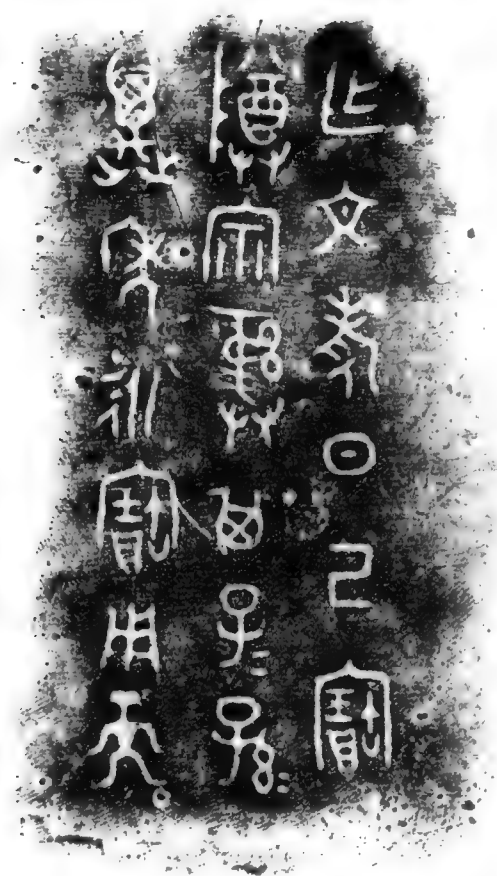 乍文考日己寶
尊宗彝其子=孫=
萬年永寶用天